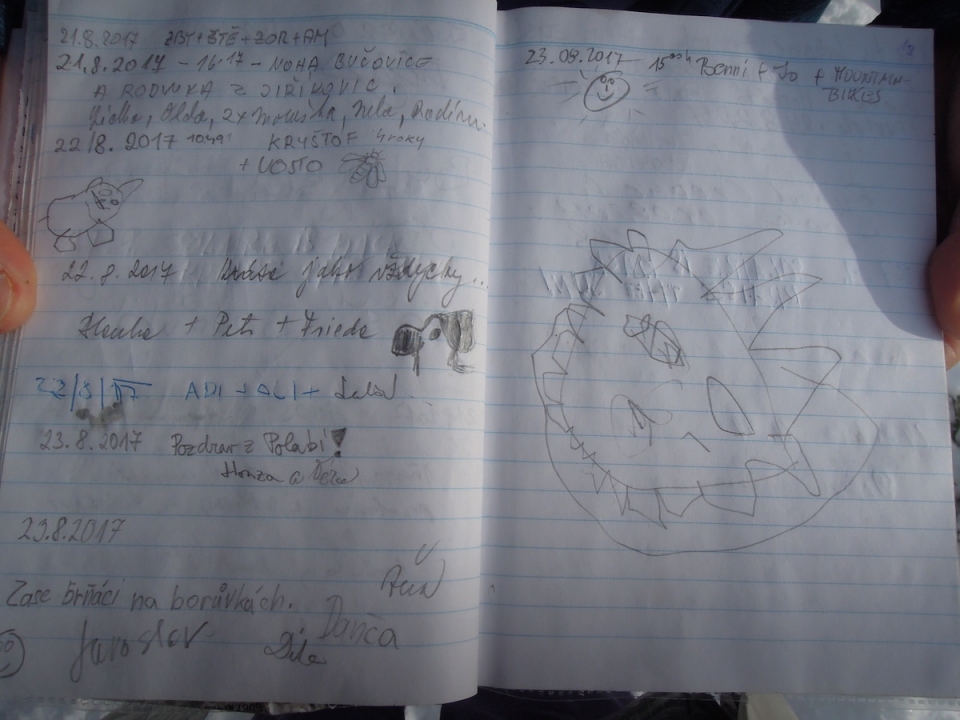 21.8.2017 ZBY+ŠTĚ+ZOR+AM
21.8.2017 – 14:17 – NOHA BUČOVICE
A RODINKA Z JIŘÍKOVIC.
Olda, 2x Maruška, Nela, Radim.
22/8. 2017 10:49 KRYŠTOF 4 roky
+ VOSTO
22.8.2017 Krása jako vždycky...
Hanka + Petr + Frieda
23/8/17 ADI + ALI +
23.8.2017 Pozdrav z Polabí!
Honza a
23.8.2017
Zase brňáci na borůvkách.
Jaroslav
Danča
23.08.2017 15°°h Benni + Jo + MOUNTAIN-
BIKES